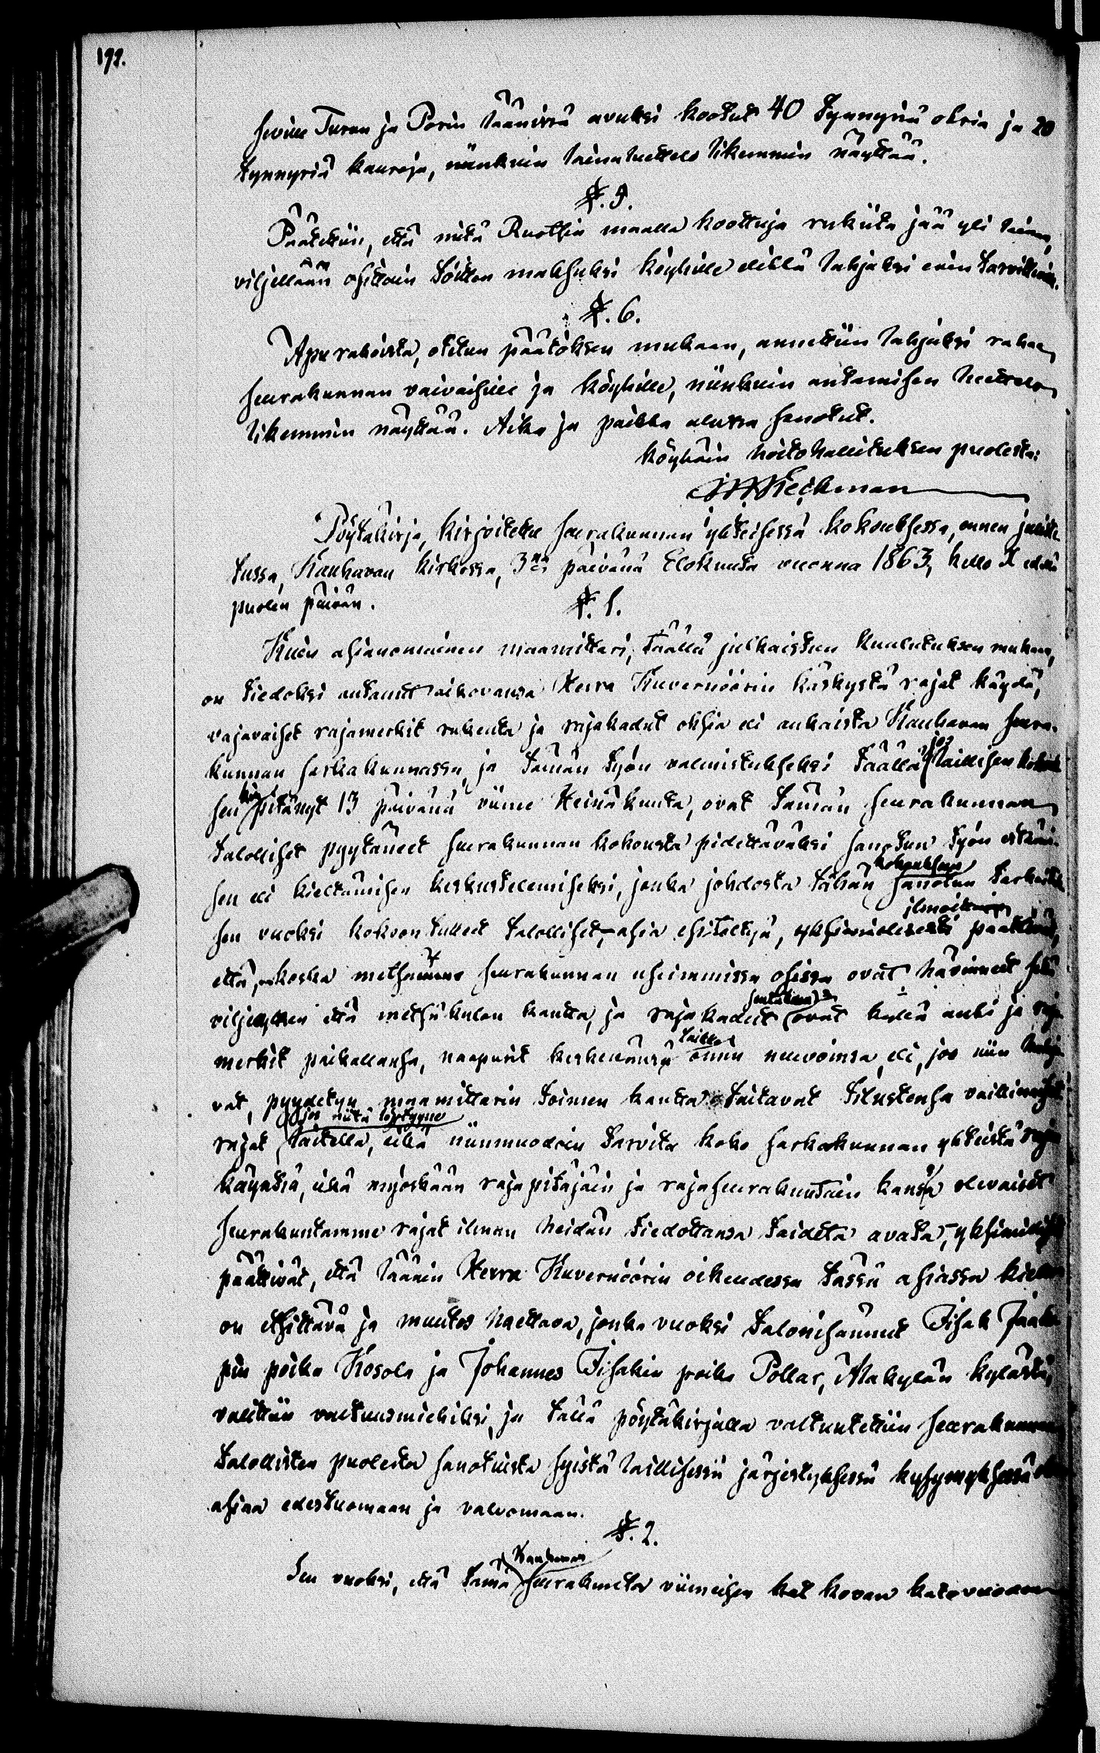 192.
Turun ja Porin läänissä avuksi kootut 40 Tynnyriä ohria ja 20
tynnyriä kauroja, niinkuin lainaluettelo likemmin näyttää.
§. 5.
Päätettiin, että mitä Ruothin maalla koottuja rukiita jää yli
viljellään osittain työtten maksuksi köyhille elikkä lahjaksi enin tarvitsevi.
§. 6.
Apu rahoista, otetun päätöksen mukaan, annettiin lahjaksi rahaa
seurakunnan vaivaisille ja köyhille, niinkuin antamisen luettelo
likemmin näyttää. Aika ja paikka alussa sanotut.
Köyhäin hoitohallituksen puolesta:
Pöytäkirja, kirjoitettu seurakunnan yhteisessä kokouksessa, ennen
tussa, Kauhavan kirkossa, 3na päivänä Elokuuta vuonna 1863, kello X edellä
puolen päivän.
§. 1.
Kuin asianomainen maamittari, täällä julkaistun kuulutuksen mukaan,
on tiedoksi antanut aikovansa Herra Kuvernöörin käskystä rajat käydä,
vajavaiset rajamerkit rakenta ja rajakadut oksia eli aukaista Kauhavan seura-
kunnan jakokunnassa, ja tämän työn valmistukseksi täällä jos laillisen
sen pitänyt 13 päivänä viime Heinäkuuta, ovat tämän seurakunnan
talolliset pyytäneet seurakunnan kokousta pidettäväksi sanotun työn estämi-
sen eli kieltämisen keskustelemiseksi, jonka johdosta tähän kokoukseen sanotun
sen vuoksi kokoon tulleet talolliset, asia esiteltyä, yksimielisesti ilmoittivat
että, koska metsämme seurakunnan uloimmissa osissa ovat hävinneet sekä
viljelyksen että metsäkulon kautta, ja rajakadut seutuina ovat kyllä auki ja raja
merkit paikallansa, naapurit keskenänsä taikka omin neuvoinsa, eli, jos niin
vat, pyydetyn maamittarin toimen kautta taitavat tilustensa vaillinaiset
rajat, jos niitä löytynee laitella, eikä niinmuodoin tarvita koko jakokunnan yhteistä
käyntiä, eikä myöskään rajapitäjäin ja rajaseurakuntain kanssa olevaiset
seurakuntamme rajat ilman heidän tiedottansa taideta avata, yksimielisesti
päättivät, että läänin Herra Kuvernöörin oikeudessa tässä asiassa
on esitettävä ja muutos haettava, jonka vuoksi talonisännät Iisak Jaako
pin poika Kosola ja Johannes Iisakin poika Pollar, Alakylän kylästä,
valittiin valtuusmiehiksi, ja tällä pöytäkirjalla valtuutettiin seurakunnan
talollisten puolesta sanotuista syistä laillisessä järjestyksessä kysymyksessä
asiaa edestuomaan ja valvomaan.
§. 2.
Sen vuoksi, että tämä Kauhavan seurakunta viimeisen kat kovan katovuoden